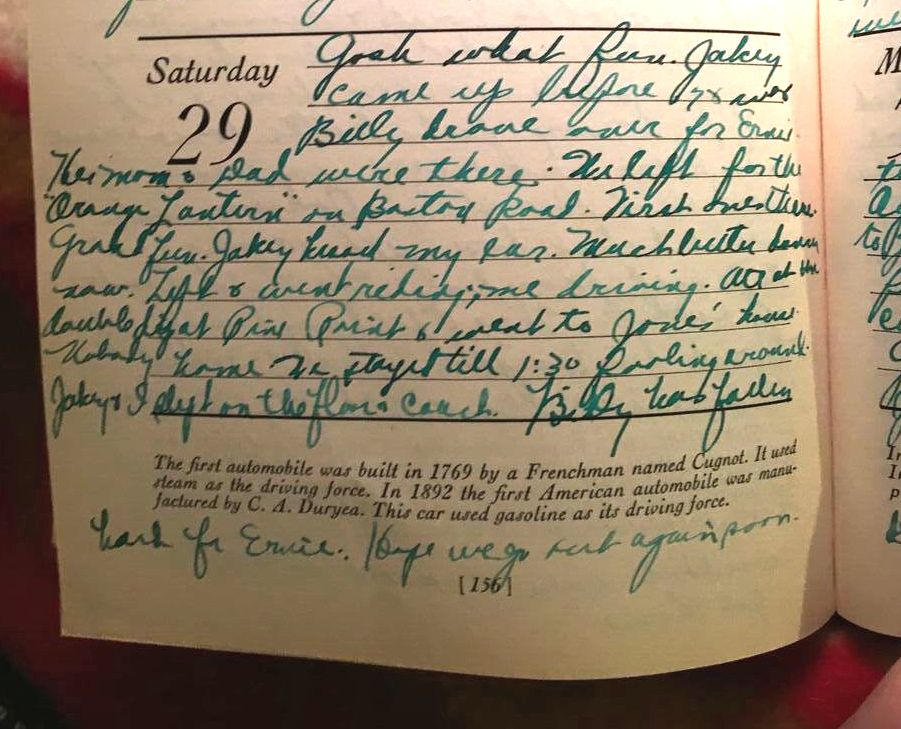 Saturday
29
Gosh what fun. Jakey
came up before 7 &
Billy drove over for Ernie.
Her mom & Dad were there. We left for the
"Orange Lantern" on Road. First ones there.
Grand fun. Jakey my ear. Much better
now. Left & went riding, me driving. at the
double light Pine Point & went to Jones' house.
Nobody home We stayed till 1:30 fooling around.
Jakey & I slept on the floor & couch. Billy has fallen
The first automobile was built in 1769 by a Frenchman named Cugnot. It used
steam as the driving force. In 1892 the first American automobile was manu-
factured by C. A. Duryea. This car used gasoline as its driving force.
hard for Ernie. Hope we go out again soon.
[156]
M